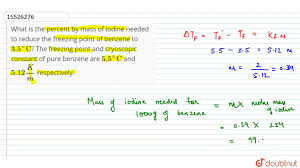 15526276
What is the percent by mass of iodine needed
to reduce the freezing point of benzene to
3.5°C? The freezing point and cryoscopic
constant of pure benzene are 5.5°C and
5.12 K/m respectively.
ΔTf = Tf° - Tf = kf.m
5.5 - 3.5 = 5.12 m
m = 2/5.12 = 0.39
Mass of iodine needed for
1000g of benzene
= m x molar mass
of iodine
= 0.39 x 254
= 99.
doubtnut